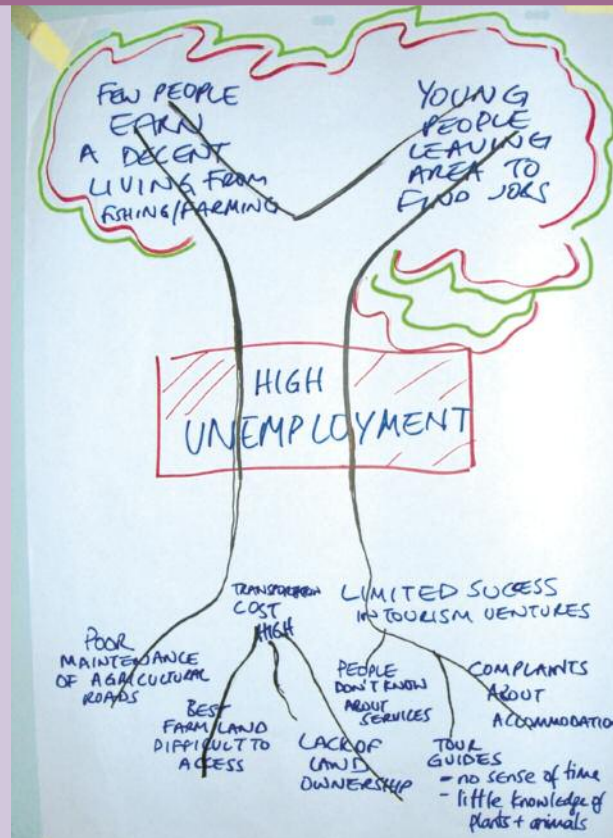 FEW PEOPLE
EARN
A DECENT
LIVING FROM
FISHING/FARMING
YOUNG
PEOPLE
LEAVING
AREA TO
FIND JOBS
HIGH
UNEMPLOYMENT
TRANSPORTATION
COST
HIGH
LIMITED SUCCESS
IN TOURISM VENTURES
POOR
MAINTENANCE
OF AGRICULTURAL
ROADS
BEST
FARM LAND
DIFFICULT TO
ACCESS
LACK OF
LAND
OWNERSHIP
PEOPLE
DON'T KNOW
ABOUT
SERVICES
TOUR
GUIDES
- no sense of time
- little knowledge of
plants + animals
COMPLAINTS
ABOUT
ACCOMMODATION